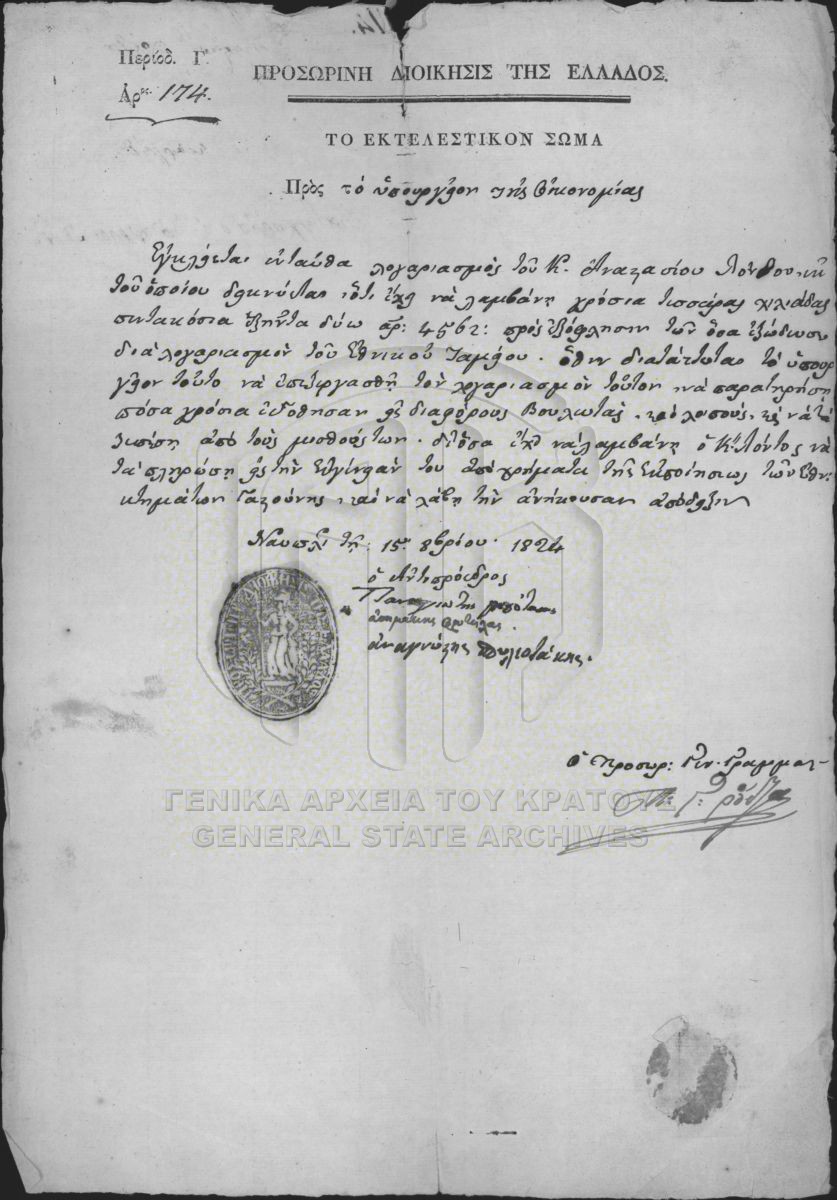 Περίοδ. Γ'.
Ἀρ. 174.
ΠΡΟΣΩΡΙΝΗ ΔΙΟΙΚΗΣΙΣ ΤΗΣ ΕΛΛΑΔΟΣ.
ΤΟ ΕΚΤΕΛΕΣΤΙΚΟΝ ΣΩΜΑ
Πρὸς τὸ ὑπουργεῖον τῆς Οἰκονομίας
Ἐγκλείεται ἐνταῦθα λογαριασμὸς τοῦ Κ. Ἀναστασίου
τοῦ ὁποίου δεικνύεται ὅτι ἔχει νὰ λαμβάνῃ γρόσια τέσσαρας χιλιάδας
πεντακόσια ἑξῆντα δύω ἀρ: 4562: πρὸς ἐξόφλησιν τῶν ὅσα ἐξώδευσε
διὰ λογαριασμὸν τοῦ Ἐθνικοῦ Ταμείου. ὅθεν διατάττεται τὸ ὑπουρ
γεῖον τοῦτο νὰ ἐπεξεργασθῇ τὸν λογαριασμὸν τοῦτον, νὰ παρατηρήσῃ
πόσα γρόσια ἐδόθησαν εἰς διαφόρους Βουλευτὰς, καὶ λοιποὺς,
ἀπὸ τοὺς μισθούς των. δι' ὅσα ἔχει νὰ λαμβάνῃ ὁ Κος νὰ
τὰ πληρώσῃ εἰς τὴν τοῦ ἀπὸ χρήματα τῆς ἐκποιήσεως τῶν Ἐθν:
κτημάτων Γαστούνης, καὶ νὰ λάβῃ τὴν ἀνήκουσαν ἀπόδειξιν
Ναυπλ: τῇ: 15ῃ 8βρίου. 1824
ὁ Ἀντιπρόεδρος
Παναγιώτης μπότασης
ἀσημάκης φωτήλας.
ἀναγνώστης σπηλιοτάκης.
ὁ Προσωρ: Γεν. Γραμμα-
ΓΕΝΙΚΑ ΑΡΧΕΙΑ ΤΟΥ ΚΡΑΤΟΥΣ
GENERAL STATE ARCHIVES